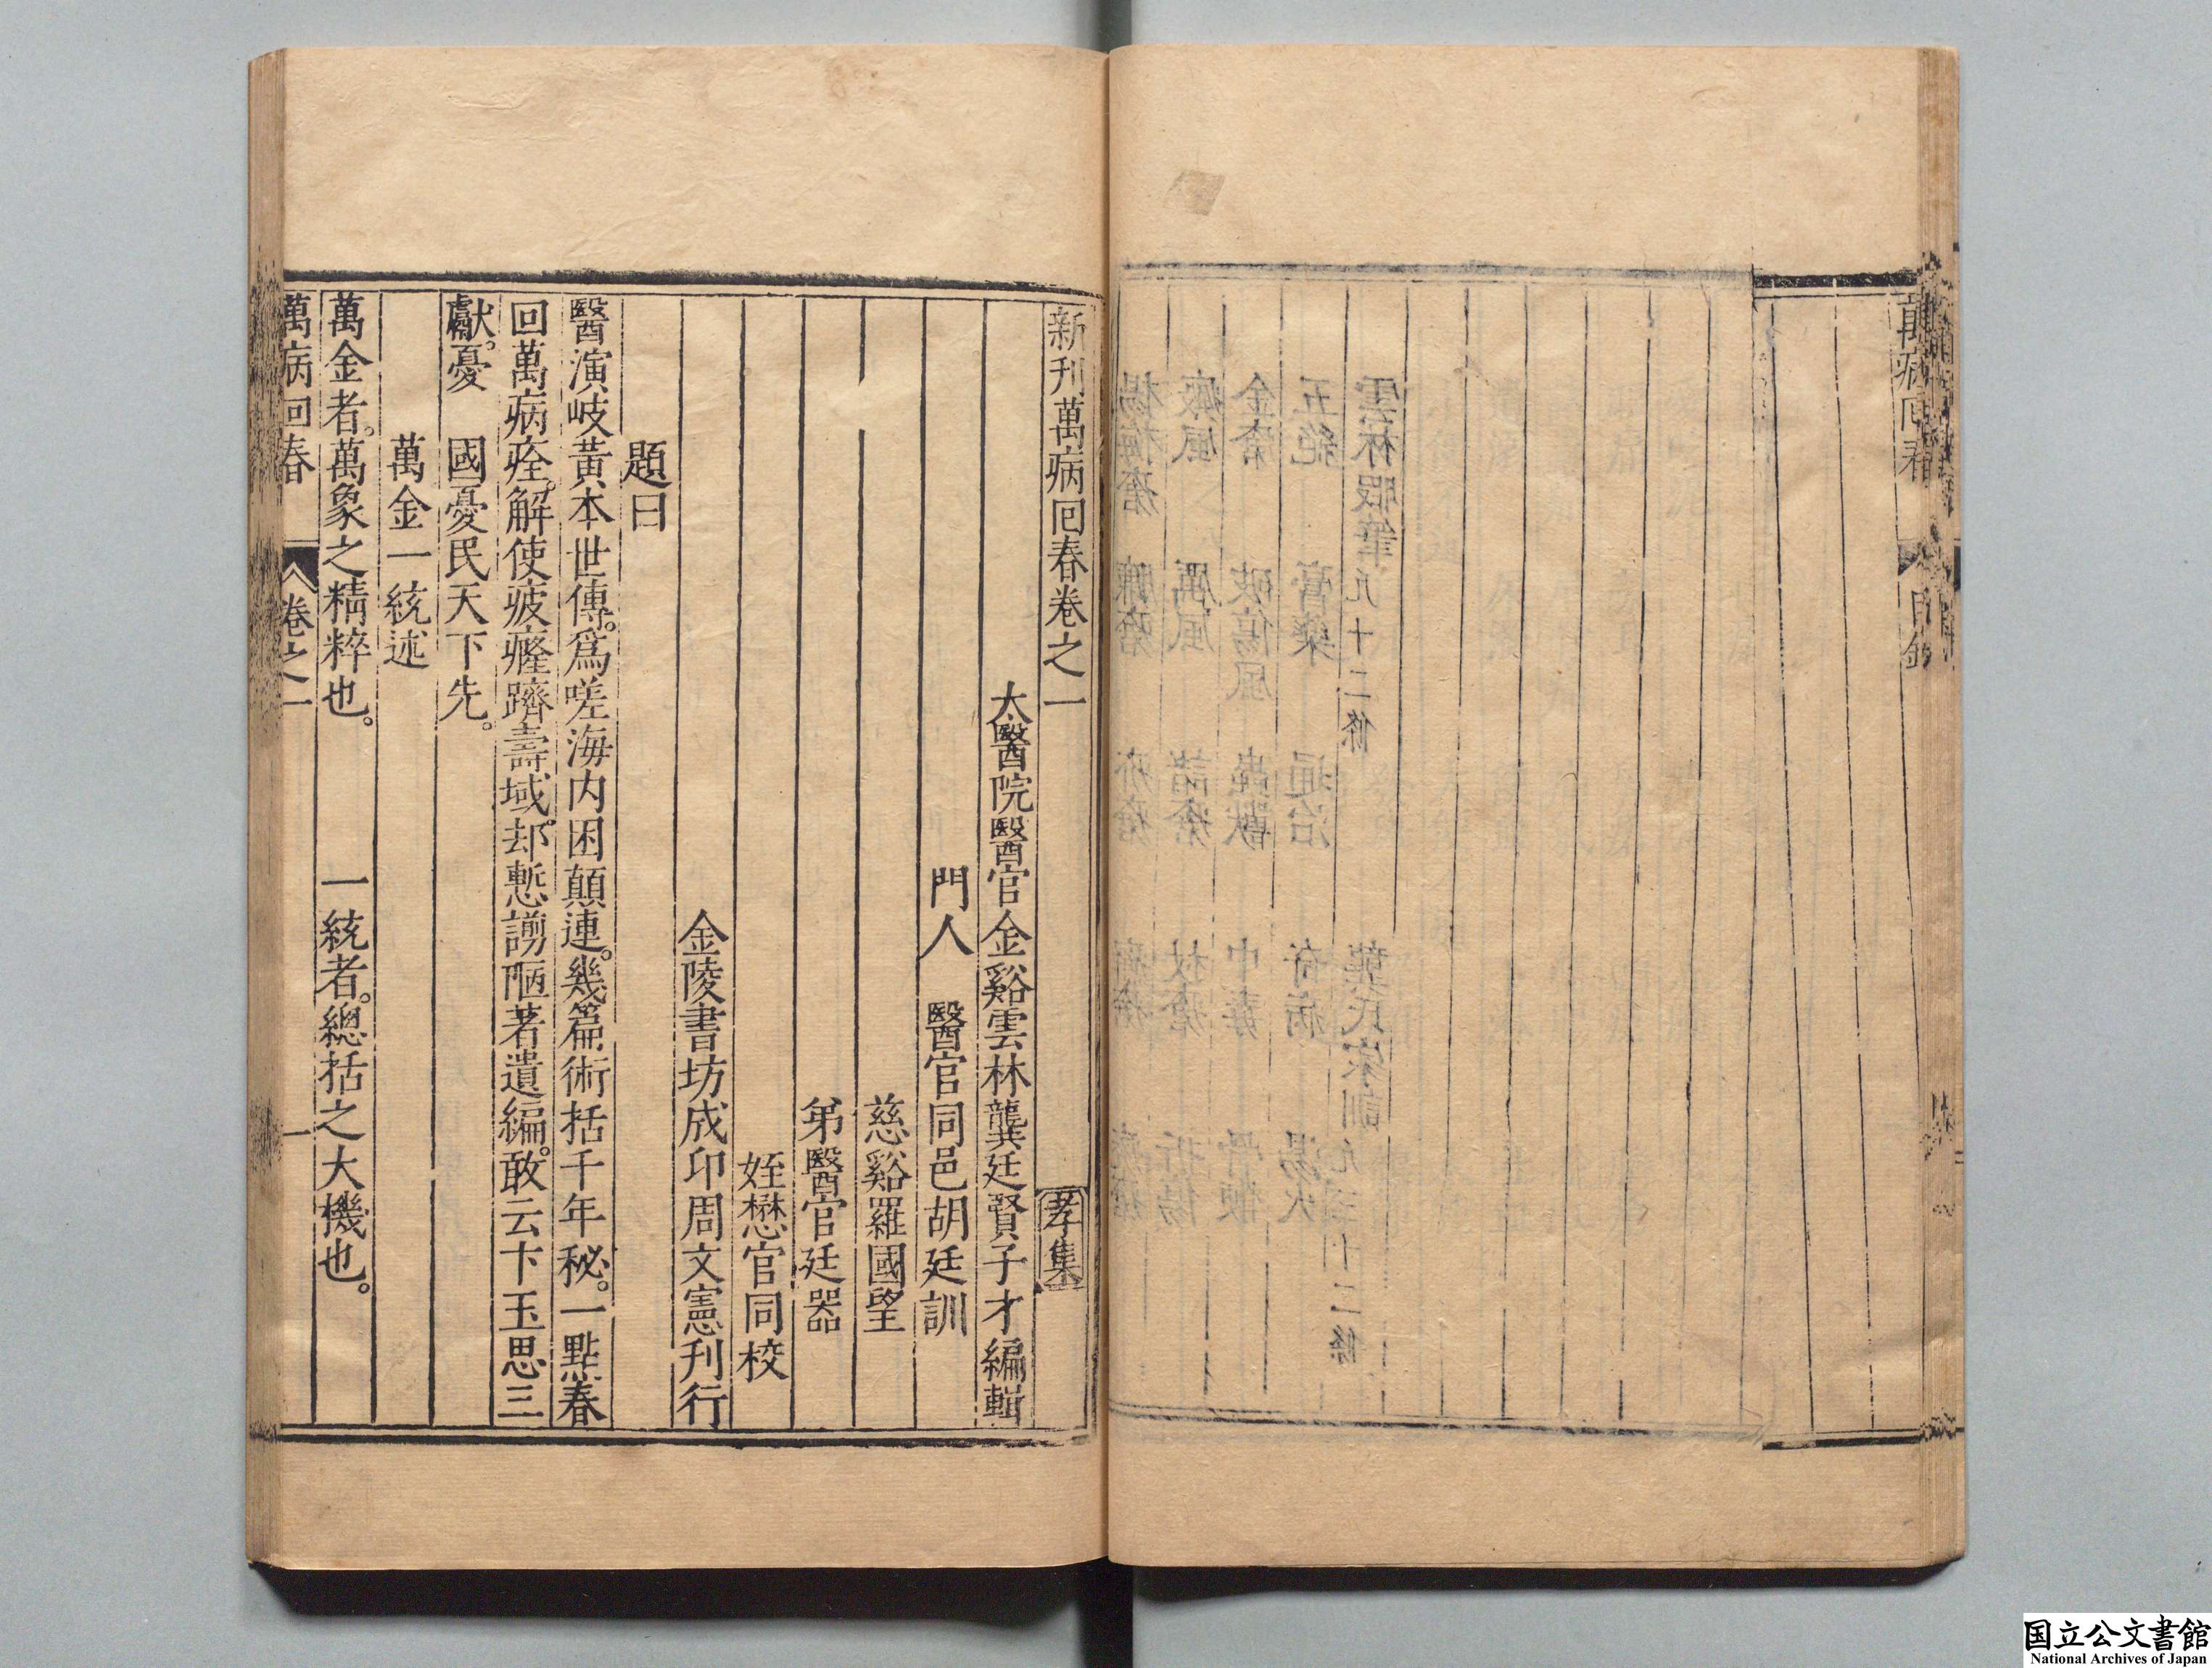 萬病回春
目錄
新刊萬病回春卷之一
孝集
太醫院醫官金谿雲林龔廷賢子才編輯
門人 醫官同邑胡廷訓
慈谿羅國望
弟醫官廷器
姪懋官同校
金陵書坊成卬周文憲刊行
題曰
醫演岐黃本世傳。爲嗟海内困顛連。幾篇術括千年秘。一點春
回萬病痊。解使疲癃躋壽域。却慙謭陋著遺編。敢云卞玉思三
獻。憂 國憂民天下先。
萬金一統述
萬金者。萬象之精粹也。 一統者。總括之大機也。
萬病回春 卷之一 一
国立公文書館
National Archives of Japan